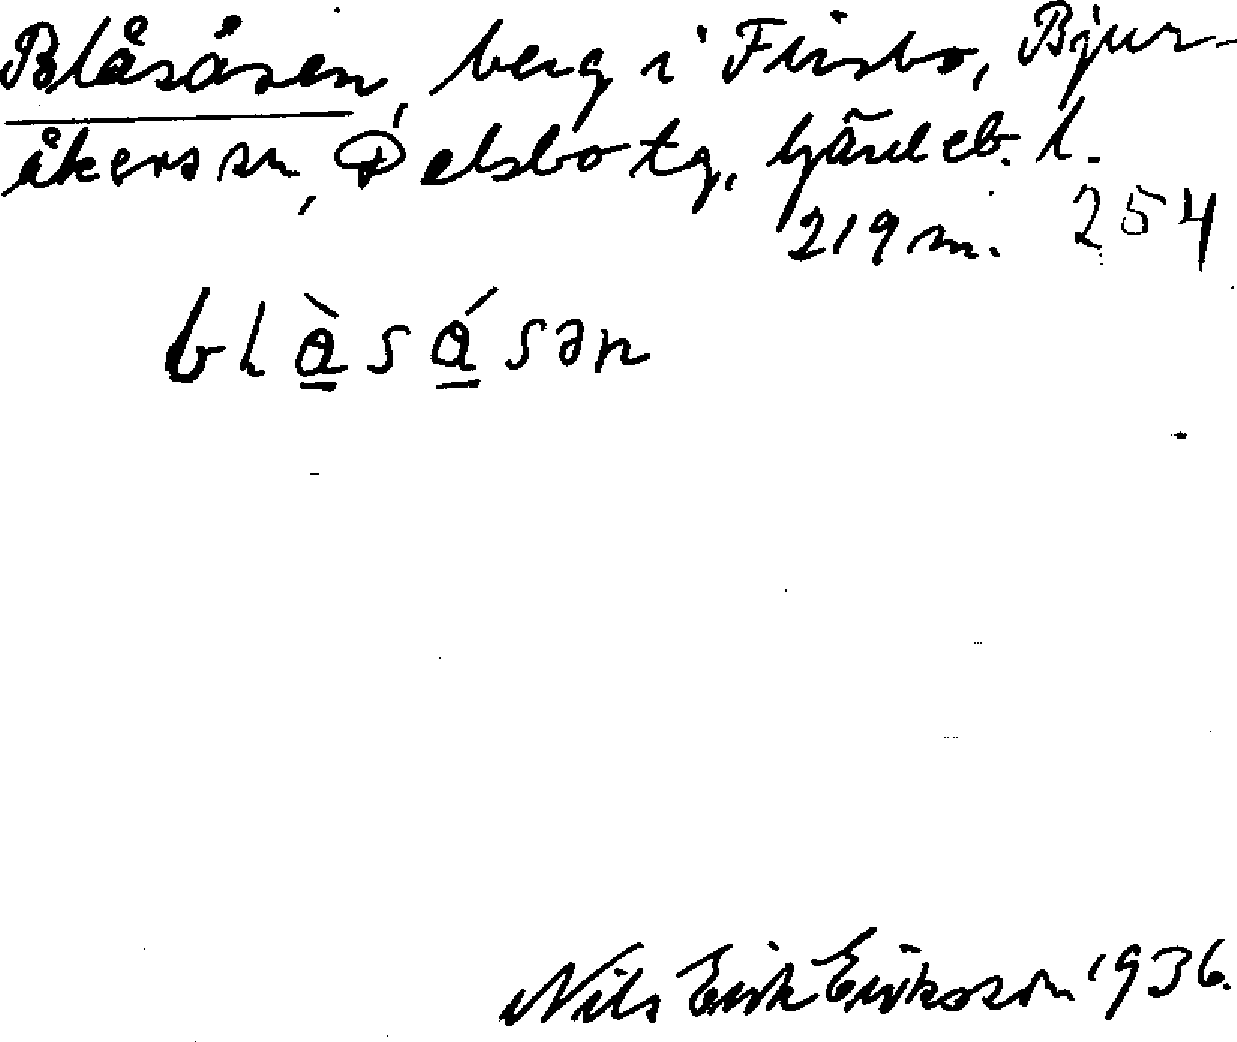 Blåsåsen, berg i Finsbo, Bjur-
åkers sn, Delsbo tg, Gävleb. l.
219 m. 254
blàsásən
Nils Erik Eriksson 1936.